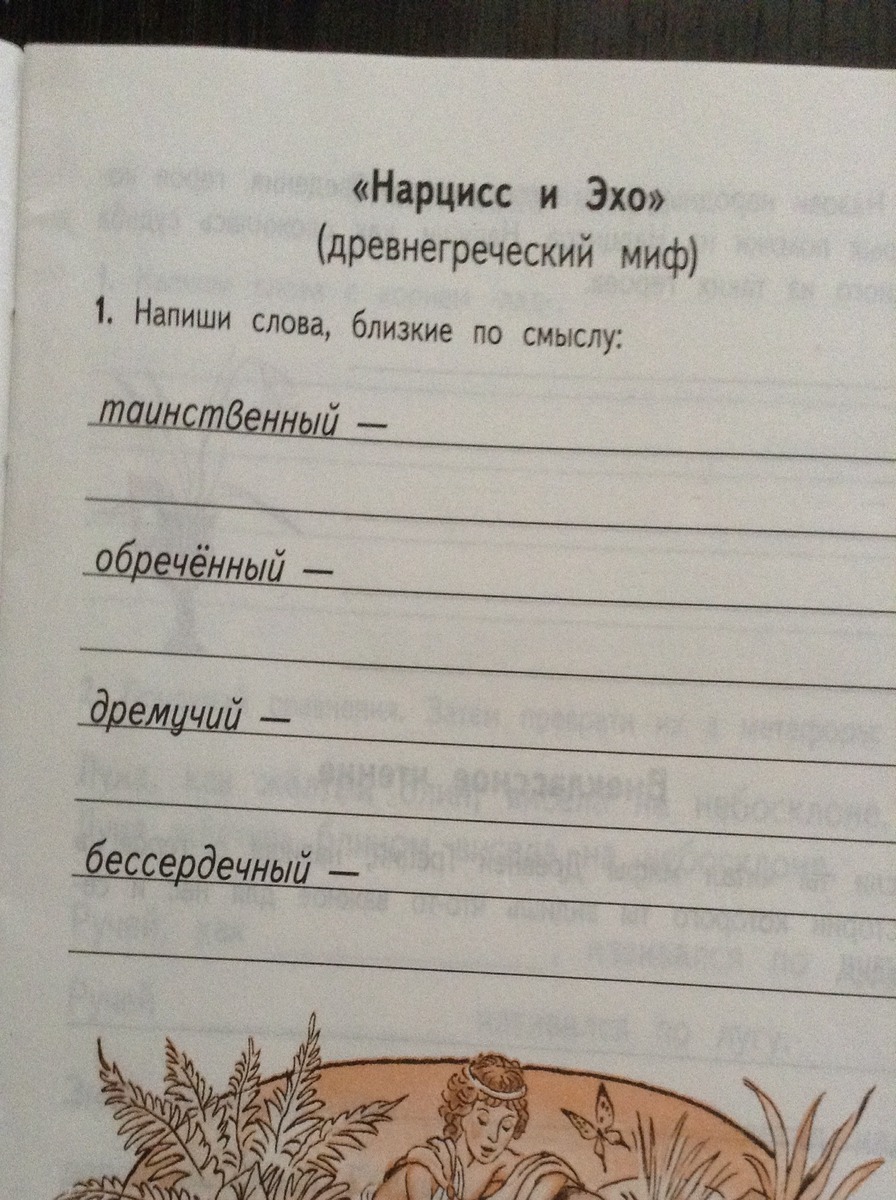 «Нарцисс и Эхо»
(древнегреческий миф)
1. Напиши слова, близкие по смыслу:
таинственный —
обречённый —
дремучий —
бессердечный —